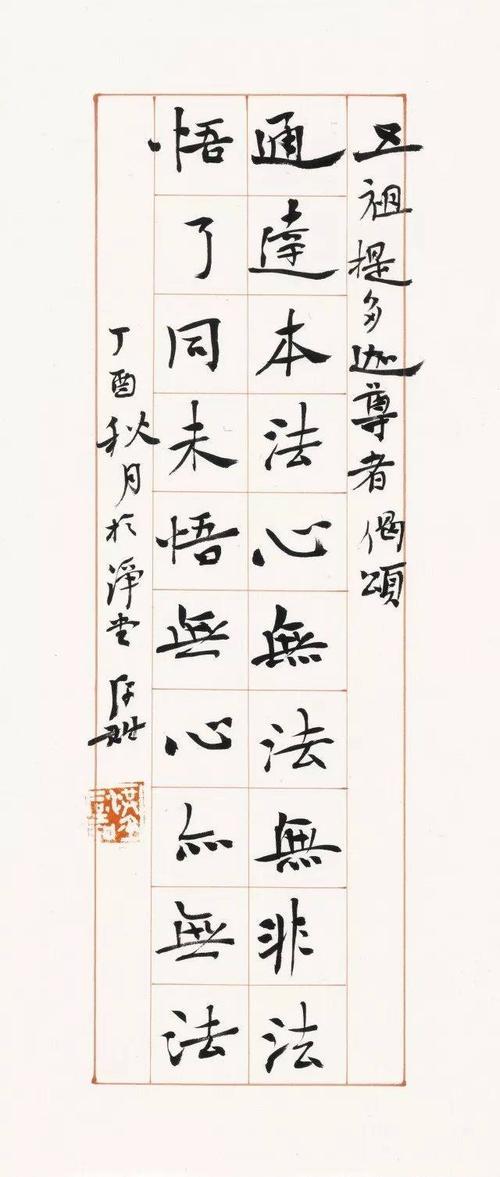 五祖提多迦尊者偈頌
通達本法心無法無非法
悟了同未悟無心亦無法
丁酉秋月於淨堂